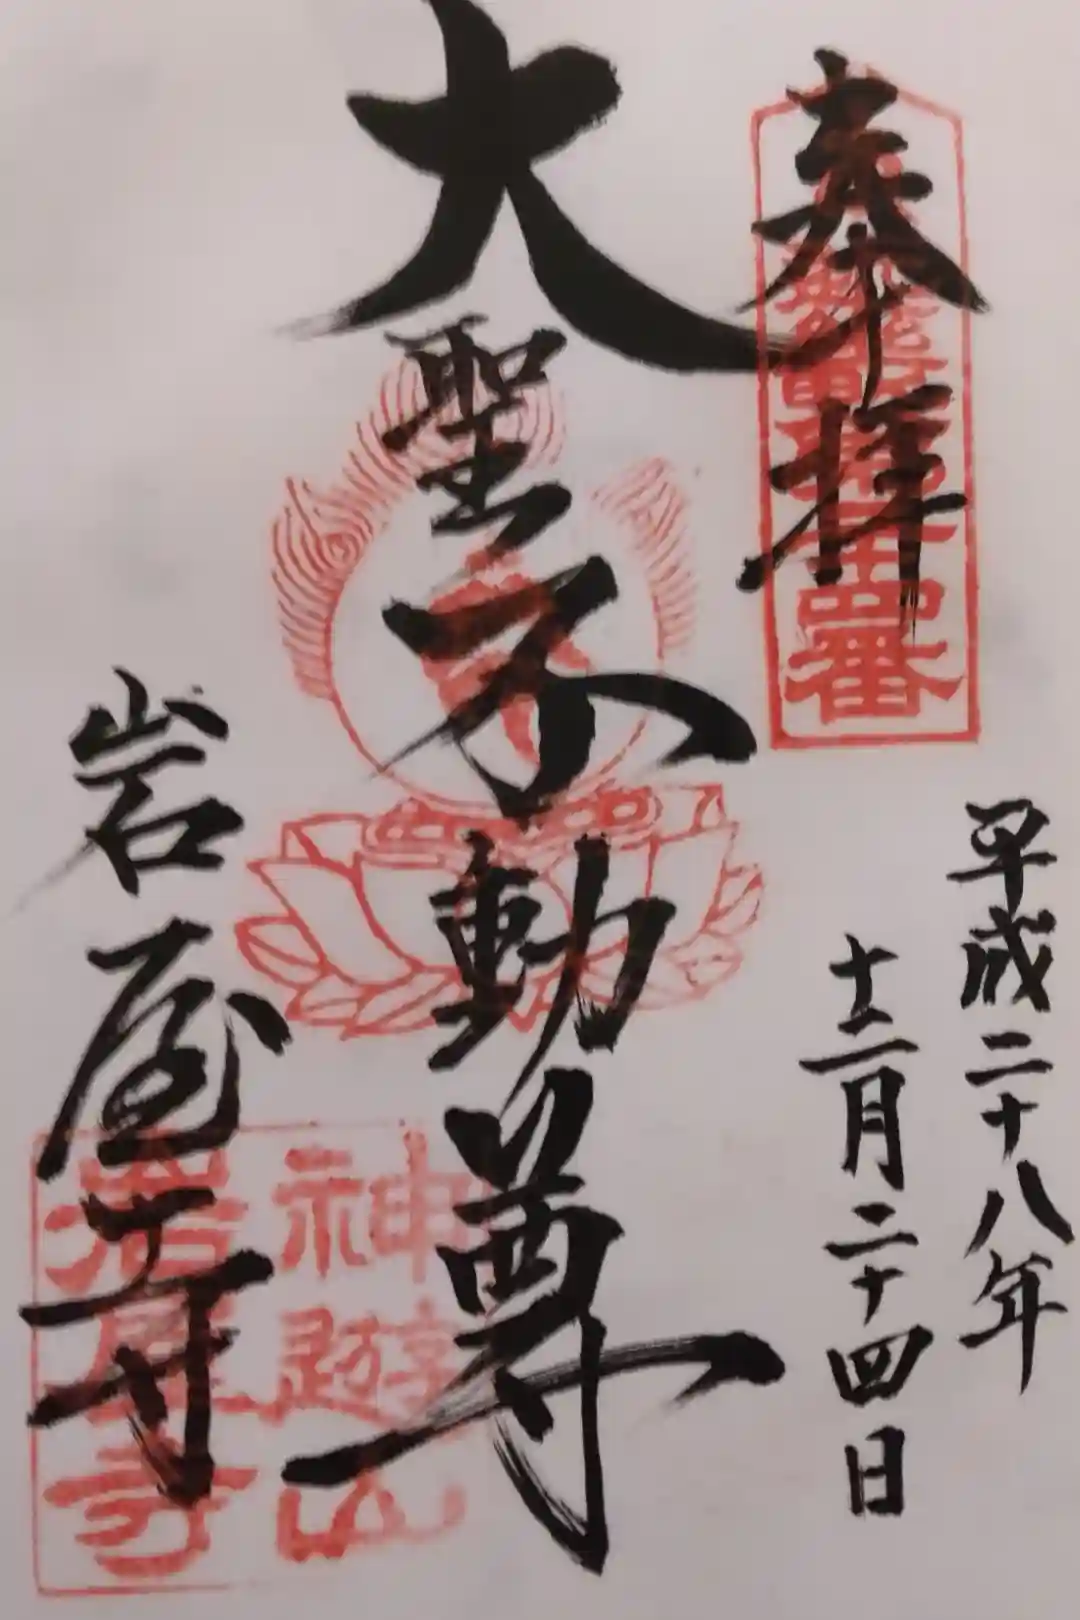 奉拝
平成二十八年
十二月二十四日
大聖不動尊
岩屋寺
神遊山
岩屋寺